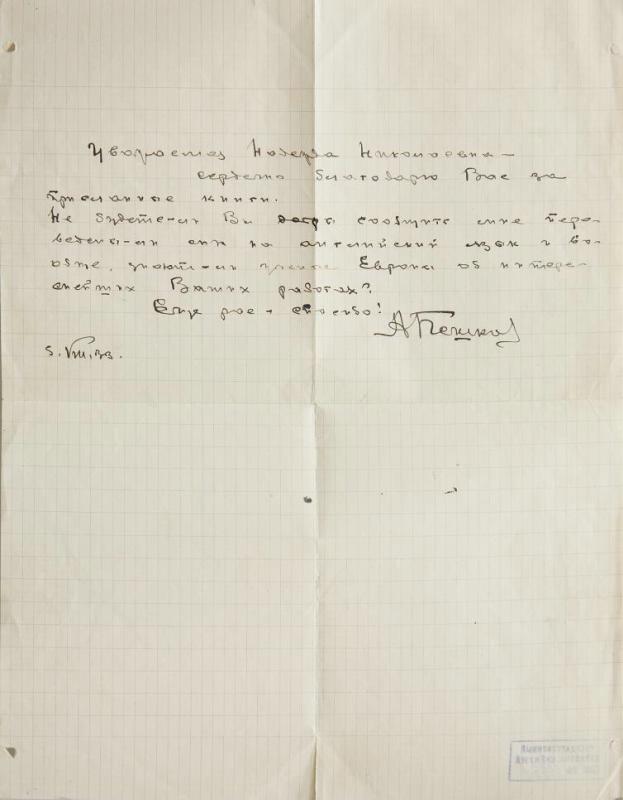 Уважаемая Надежда Николаевна —
сердечно благодарю Вас за
присланные книги.
Не будете-ли Вы добры сообщить мне пере-
ведены-ли они на английский язык и во-
обще, знают-ли ученые Европы об интере-
снейших Ваших работах?
Еще раз — спасибо!
А Пешков
5.VIII.33.
ГОСУДАРСТВЕННЫЙ